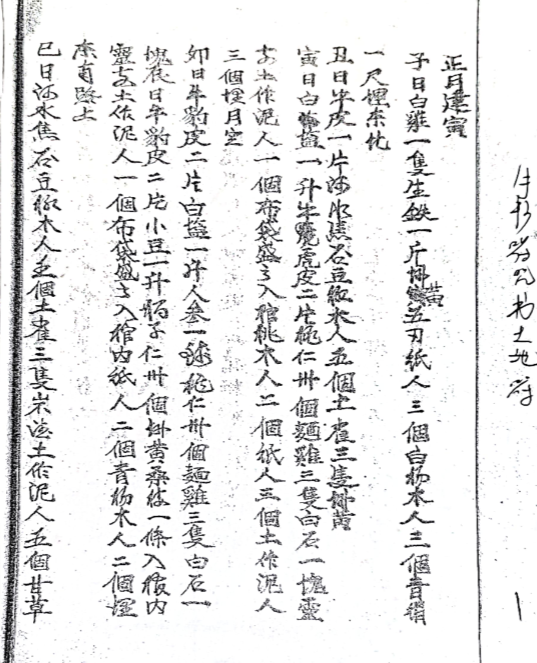 正月建寅
子日白雞一隻生鉄一斤雄黃五刃紙人三個白楊木人三個青絹
一尺埋未地
丑日牛皮一片河水焦谷豆板木人五個土雀三隻雄黃
寅日白塩一升牛鹿虎皮二片桃仁卅個麵雞三隻白石一塊靈
土作泥人一個布袋盛之入棺桃木人二個紙人三個土作泥人
三個埋月空
卯日牛豹皮二片白塩一升人參一桃仁卅個麵雞三隻白石一
塊辰日牛豹皮二片小豆一升子仁卅個雄黃桑枝一條入棺內
靈土作泥人一個布袋盛之入棺内紙人二個青楊木人二個埋
路土
巳日河水焦谷豆板木人五個土雀三隻岩土作泥人五個甘草